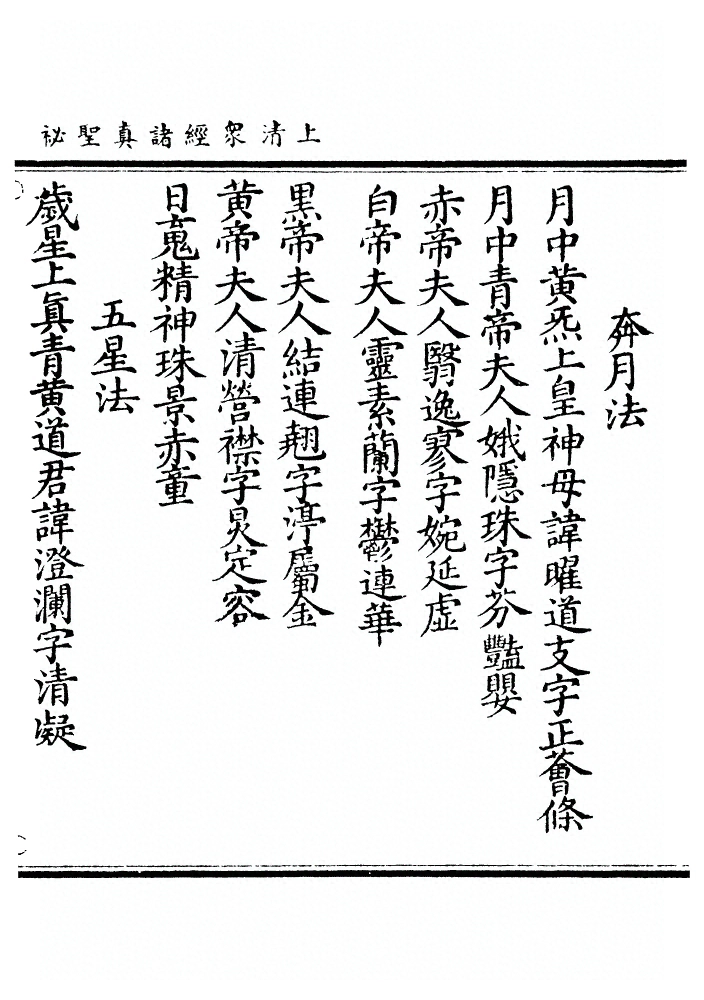 上清眾經諸真聖祕
奔月法
月中黃炁上皇神母諱曜道支字正薈條
月中青帝夫人娥隱珠字芬豔嬰
赤帝夫人翳逸寥字婉延虛
白帝夫人靈素蘭字鬱連華
黑帝夫人結連翹字渟屬金
黃帝夫人清營襟字炅定容
日䰟精神珠景赤童
五星法
歲星上真青黃道君諱澄瀾字清凝